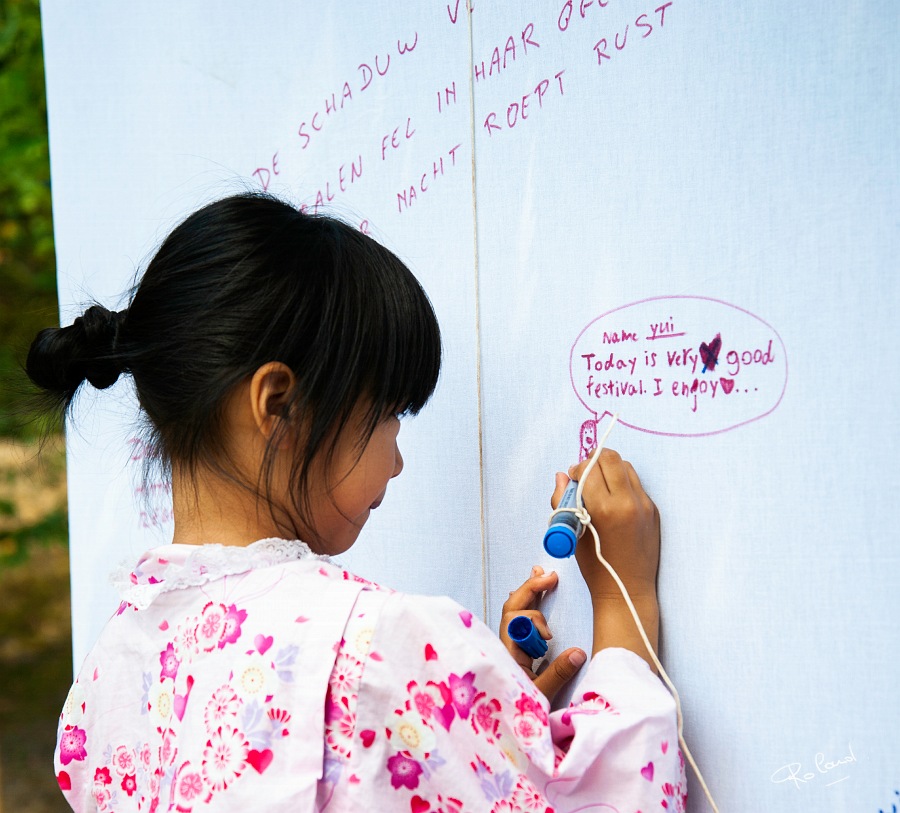 DE SCHADUW
FEL IN HAAR
NACHT ROEPT RUST
Name yui
Today is very good
festival. I enjoy...
Roland